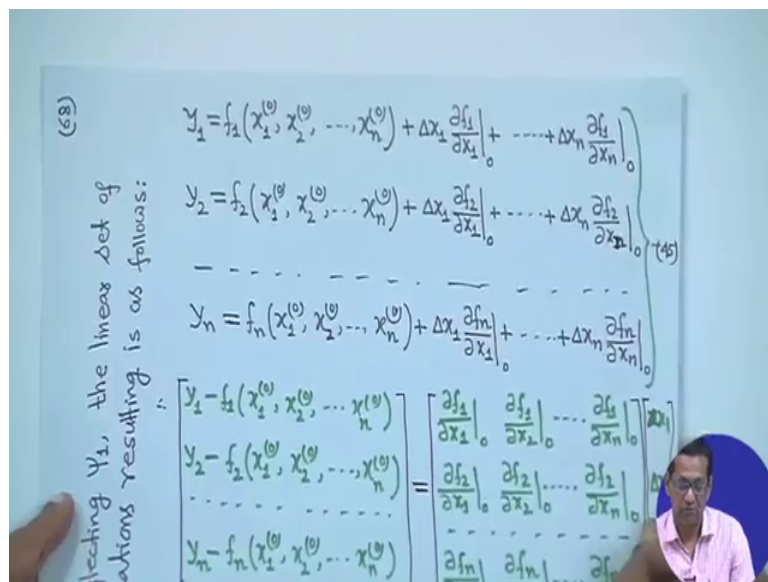 (68)
glecting Ψ1, the linear set of
ations resulting is as follows:
y1 = f1(x1^(0), x2^(0), ...., xn^(0)) + Δx1 ∂f1/∂x1|0 + ..... + Δxn ∂f1/∂xn|0
y2 = f2(x1^(0), x2^(0), ... xn^(0)) + Δx1 ∂f2/∂x1|0 + ..... + Δxn ∂f2/∂xn|0 -(45)
yn = fn(x1^(0), x2^(0), ..., xn^(0)) + Δx1 ∂fn/∂x1|0 + ..... + Δxn ∂fn/∂xn|0
∴ [y1 - f1(x1^(0), x2^(0), ... xn^(0))] = [∂f1/∂x1|0 ∂f1/∂x2|0 ..... ∂f1/∂xn|0] [Δx1]
y2 - f2(x1^(0), x2^(0), ..., xn^(0)) ∂f2/∂x1|0 ∂f2/∂x2|0 ..... ∂f2/∂xn|0
yn - fn(x1^(0), x2^(0), ... xn^(0)) ∂fn ∂fn ∂fn